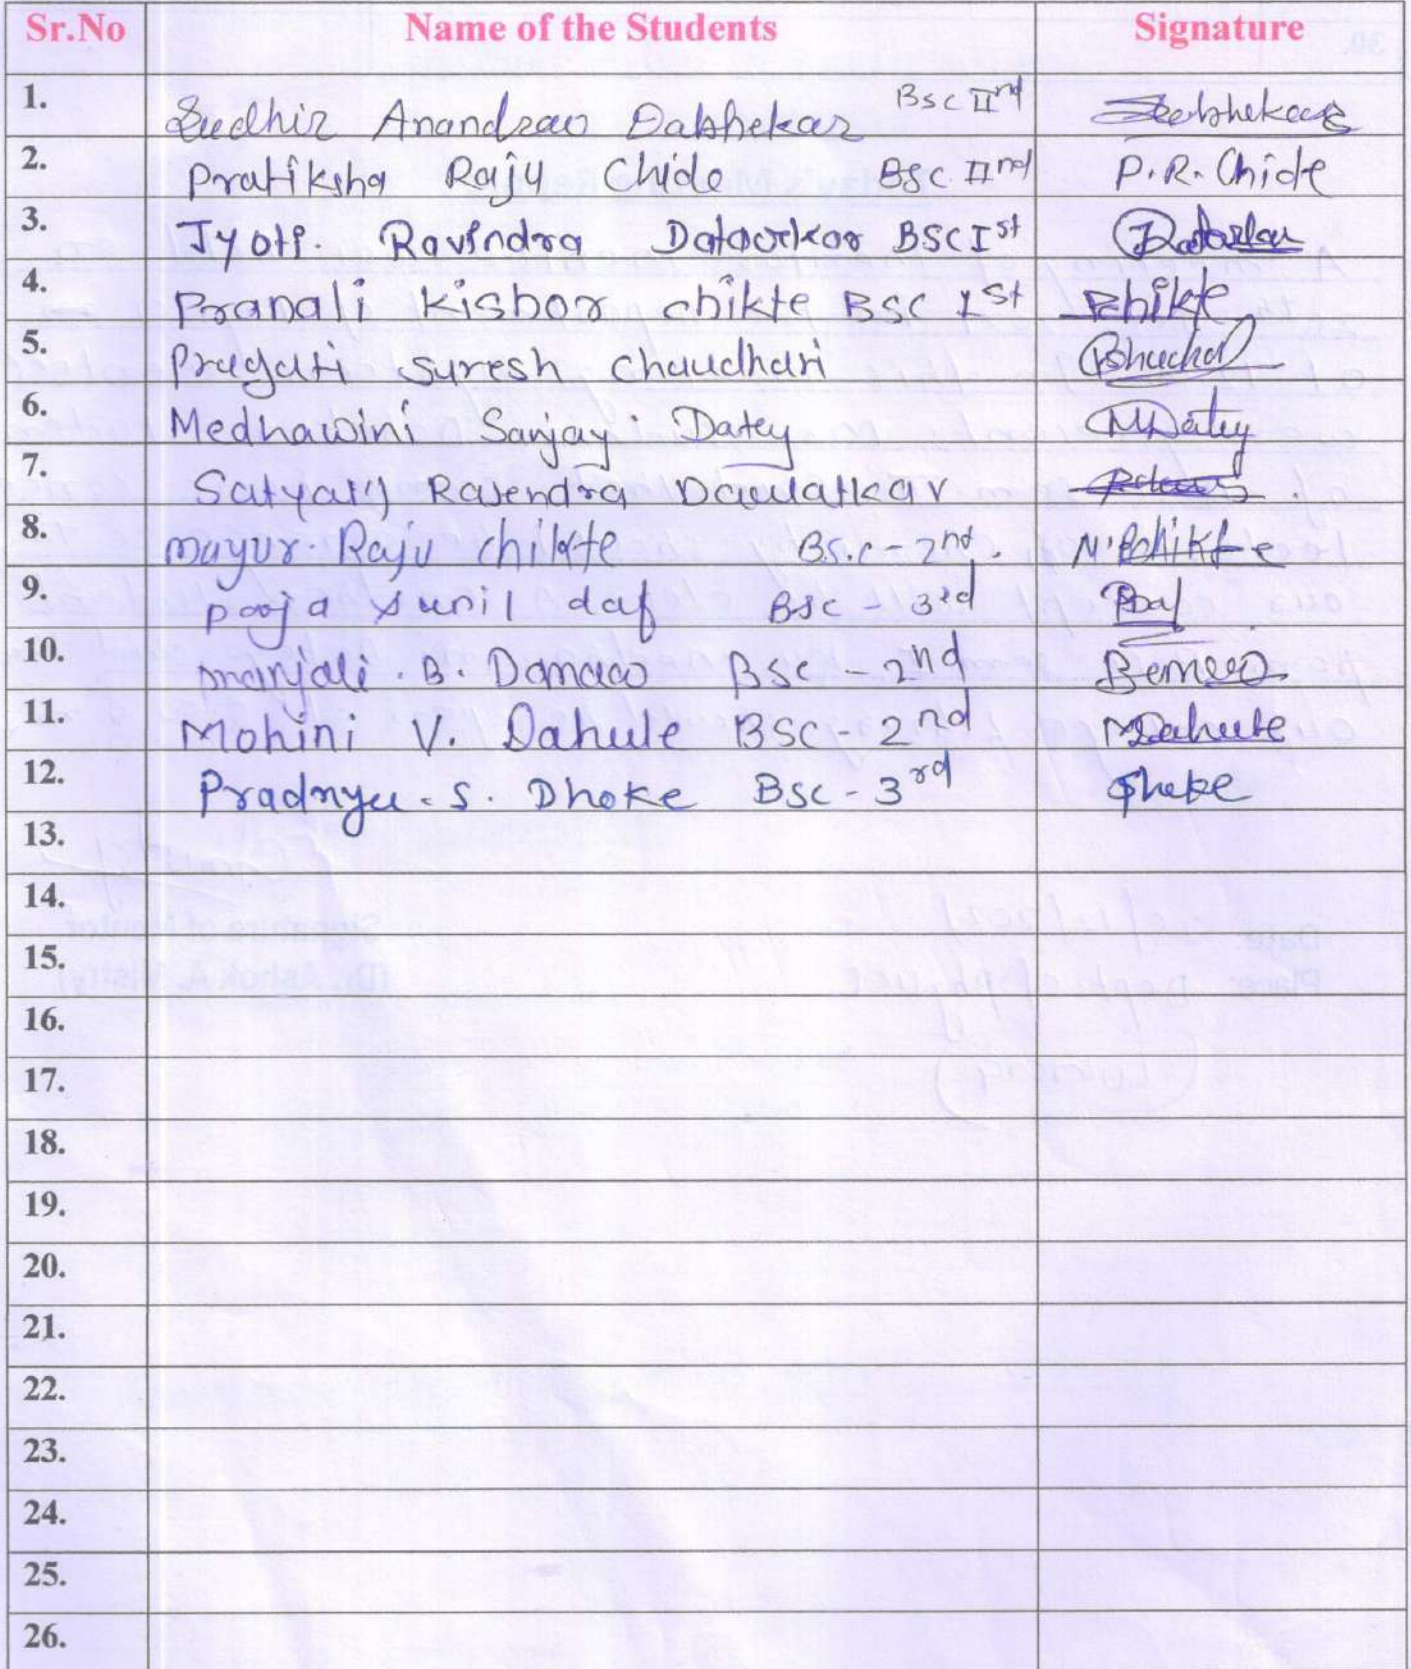 Sr.No Name of the Students Signature
1. Sudhir Anandrao Dabhekar BSC IInd
2. Pratiksha Raju Chide BSC IInd P.R. Chide
3. Jyoti. Ravindra Datarkar BSC Ist
4. Pranali Kishor chikte BSC 1st
5. Pragati Suresh Chaudhari
6. Medhawini Sanjay Datey MDatey
7. Rajendra Daulatkar
8. mayur. Raju chikte B.S.C - 2nd.
9. pooja sunil daf BSC - 3rd Daf
10. manjali. B. BSC - 2nd
11. Mohini V. Dahule BSC - 2nd MDahule
12. Pradnya. S. Dhoke BSC - 3rd
13.
14.
15.
16.
17.
18.
19.
20.
21.
22.
23.
24.
25.
26.